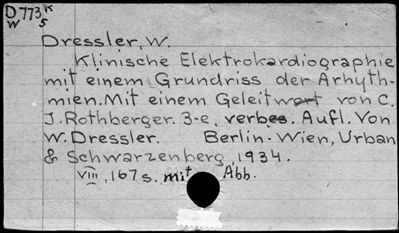 D773K
W 5
Dressler, W.
Klinische Elektrokardiographie
mit einem Grundriss der Arhyth-
mien. Mit einem Geleitwort von C.
J. Rothberger. 3-e, verbes. Aufl. Von
W. Dressler. Berlin-Wien, Urban
& Schwarzenberg, 1934.
VIII, 167 s. mit Abb.